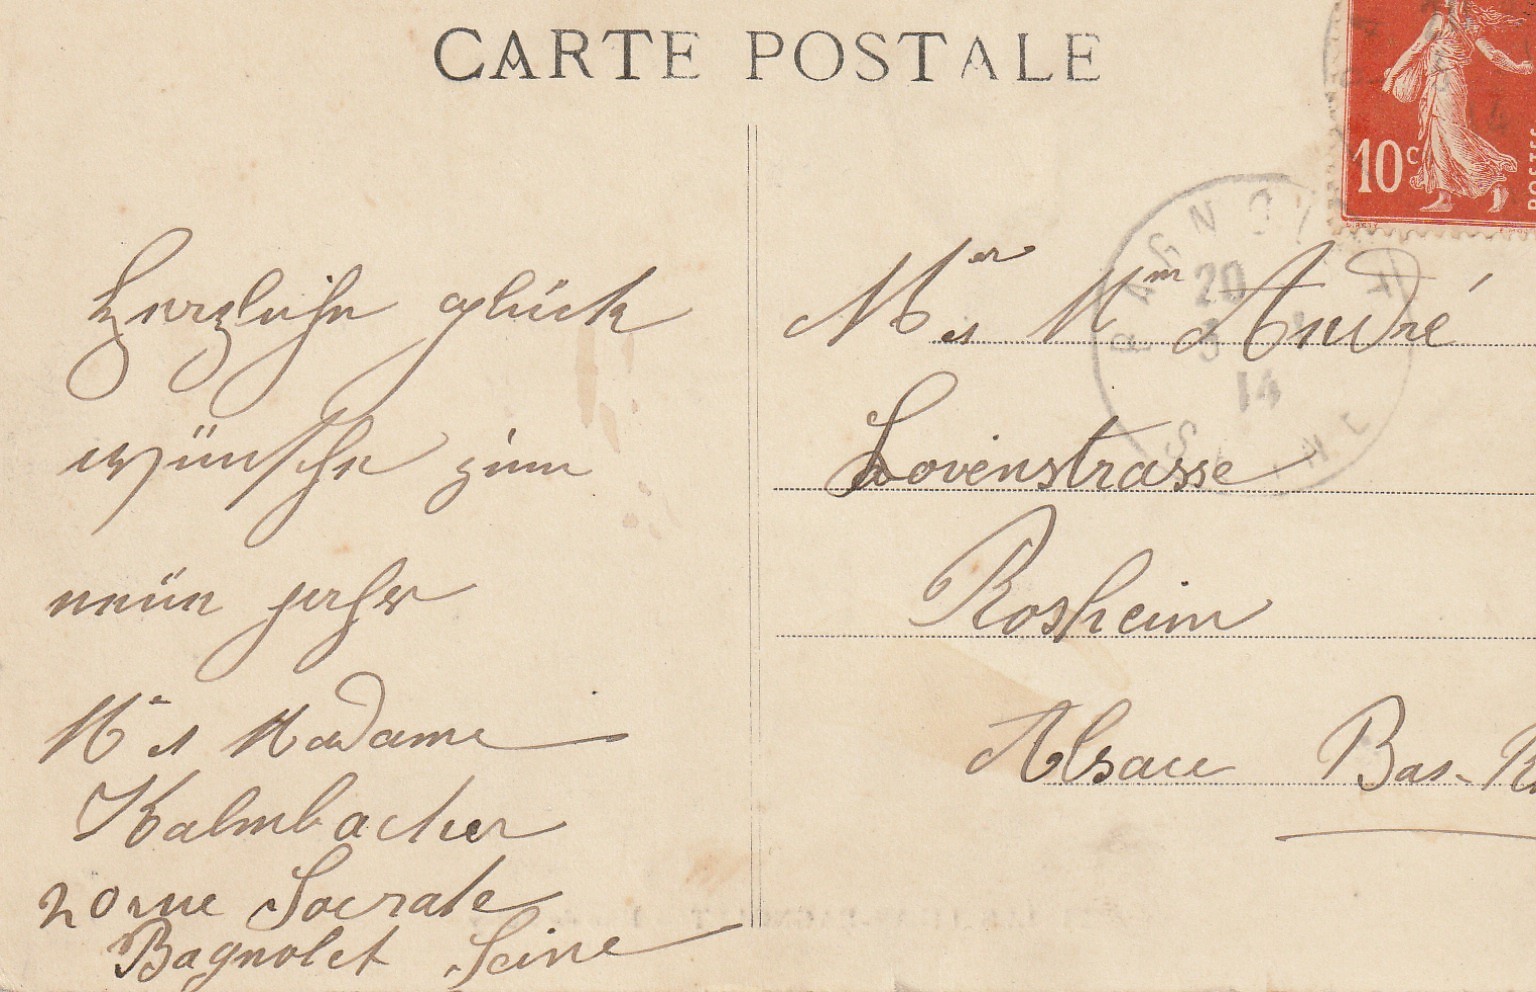 CARTE POSTALE
10c
POSTES
BAGNOLET
20
3 1
14
SEINE
Herzliche glück
wünsche zum
neüen jahr
Mr et Madame
Kalmbacher
20 rue Socrate
Bagnolet Seine
Mer et Mm André
Lovenstrasse
Rosheim
Alsace Bas-Rh